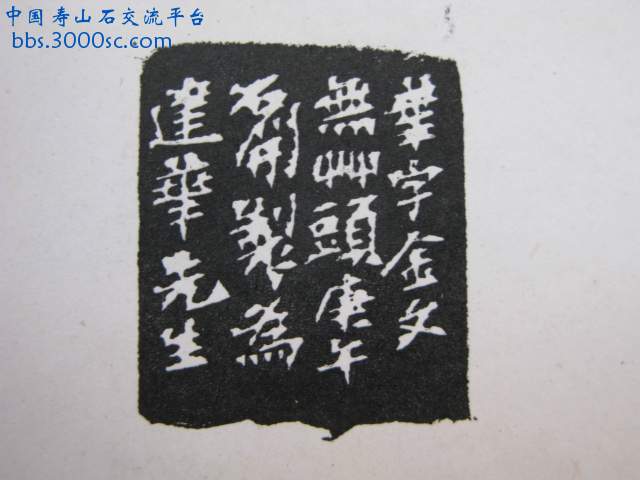 中国寿山石交流平台
bbs.3000sc.com
葉字金文
無艸頭庚午
石開製為
達華先生